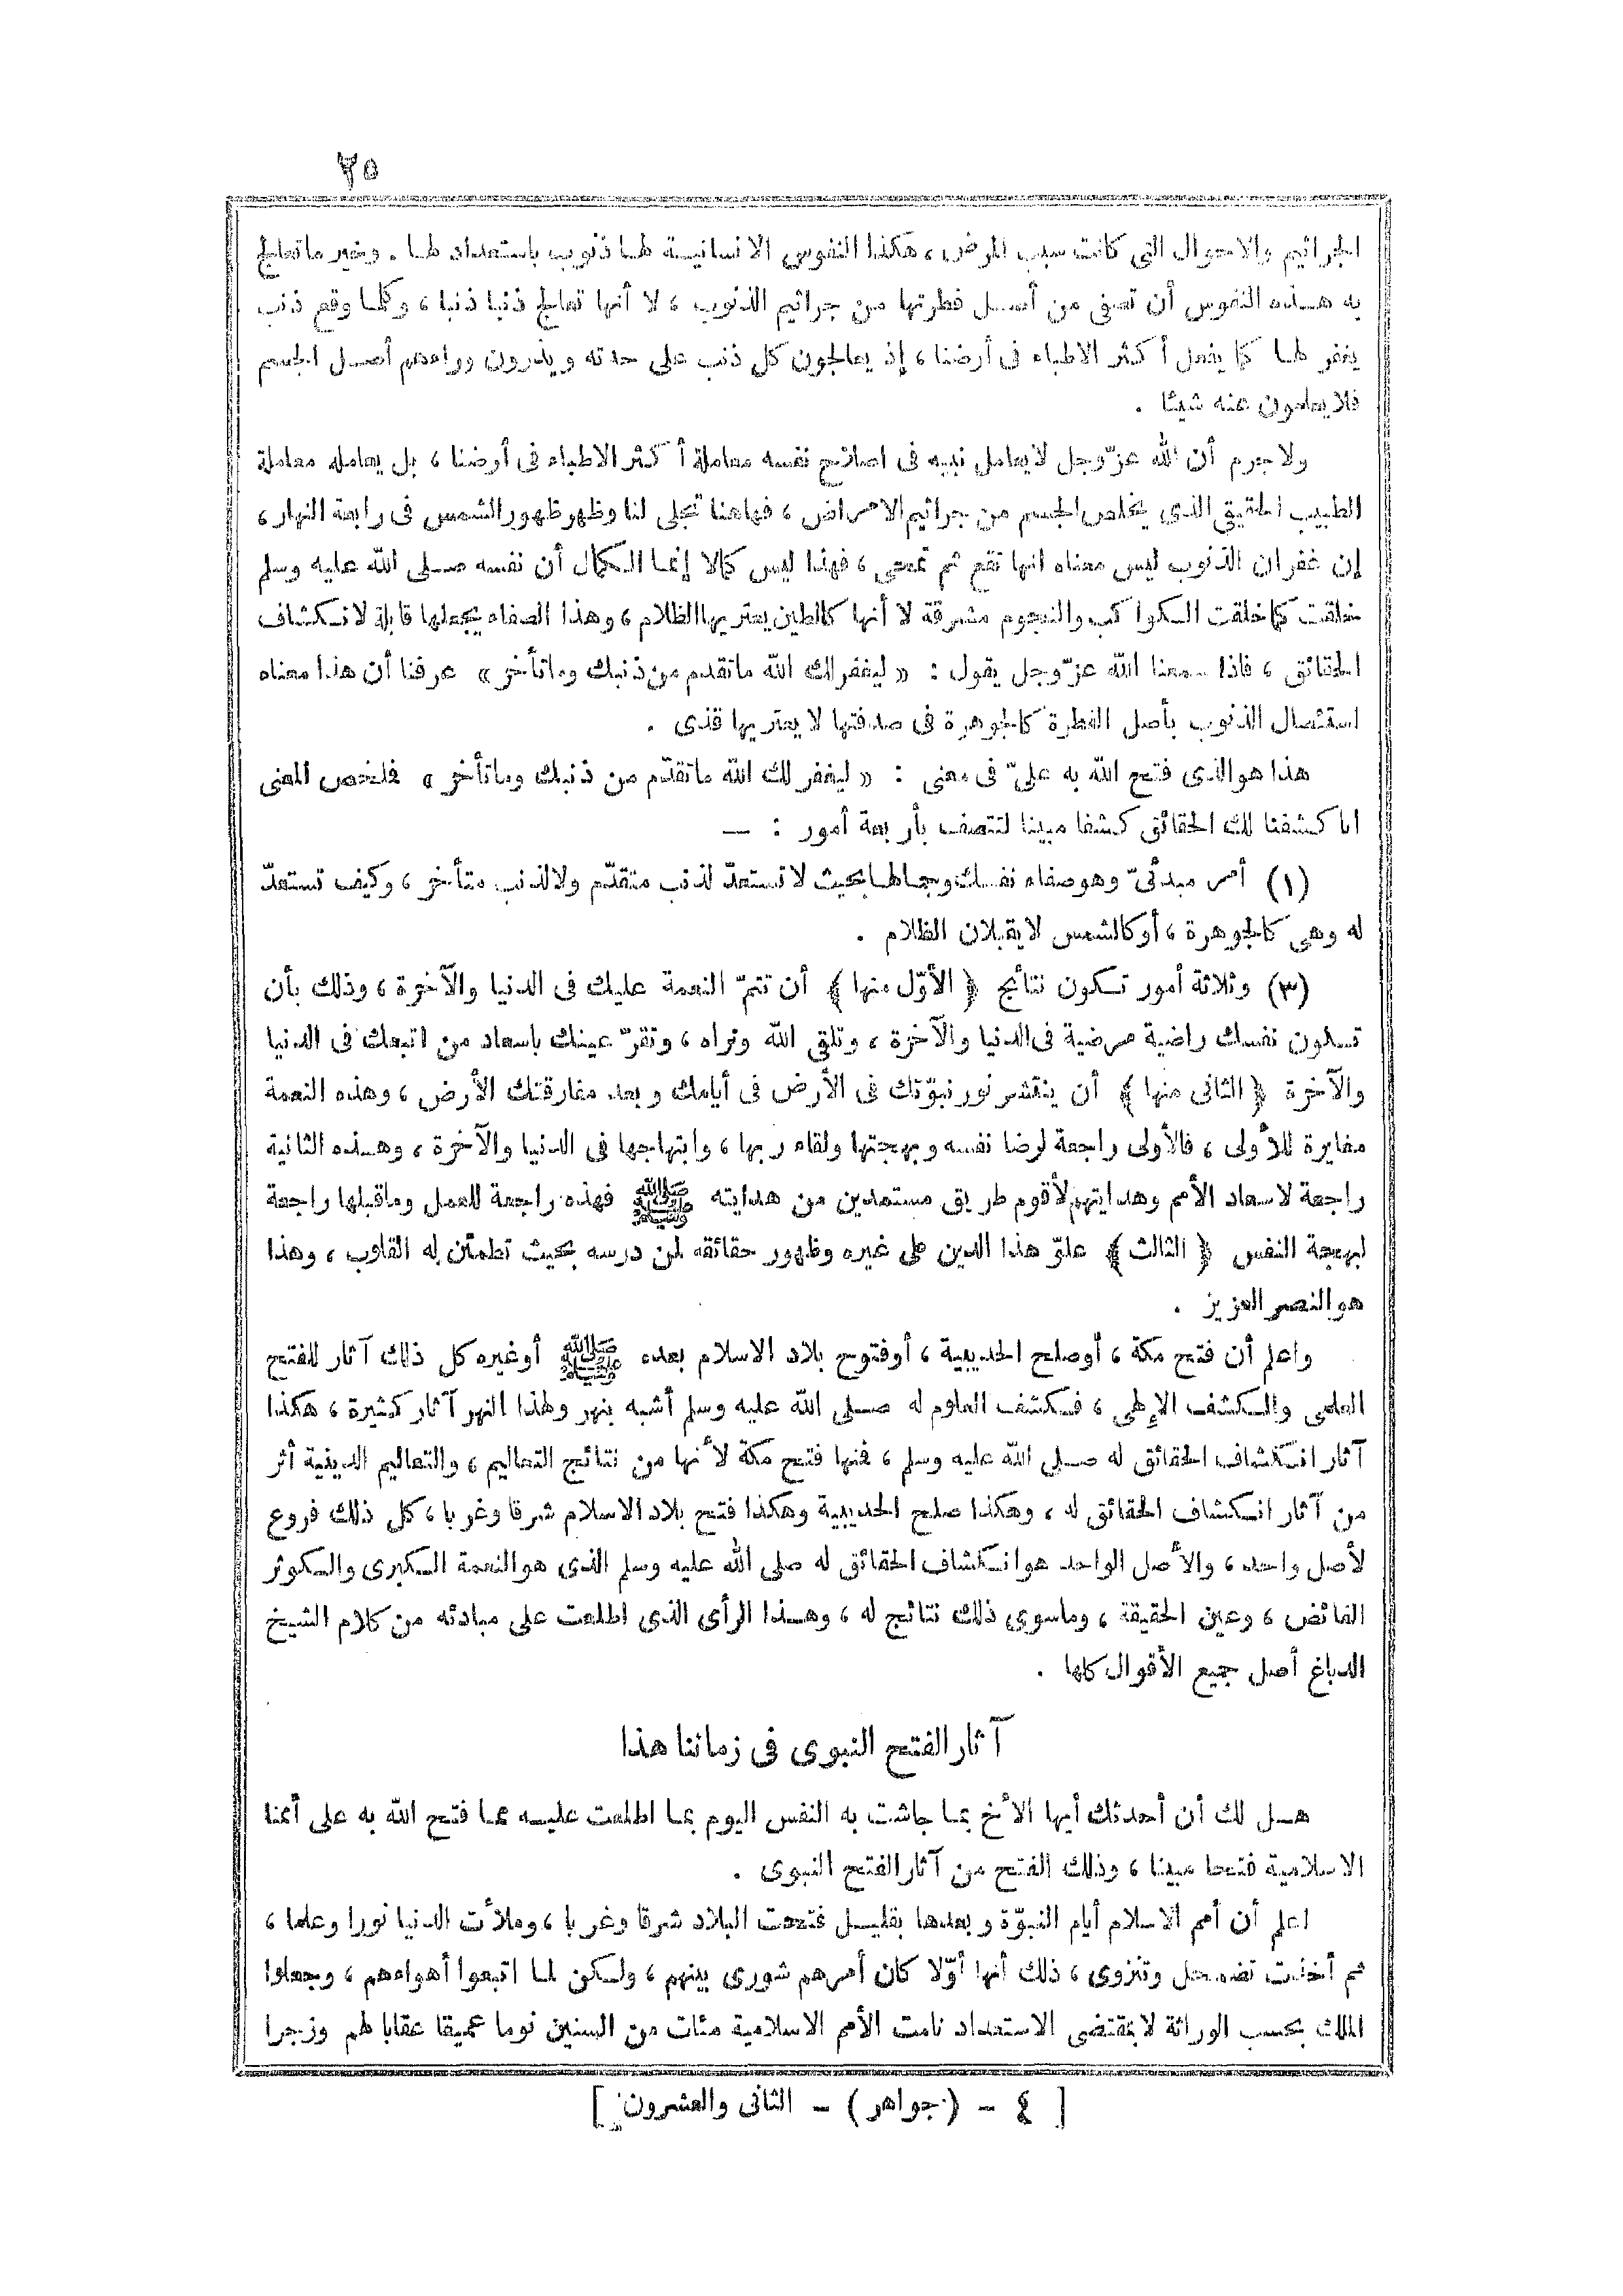 ٢٥
الجراثيم والاحوال التى كانت سبب المرض ، هكذا النفوس الانسانية لها ذنوب باستعداد لها . وخير ماتعالج
به هذه النفوس أن تصفى من أصل فطرتها من جراثيم الذنوب ، لا أنها تعالج ذنبا ذنبا ، وكلما وقع ذنب
يغفر لها كما يفعل أكثر الاطباء فى أرضنا ، إذ يعالجون كل ذنب على حدته ويذرون وراءهم أصل الجسم
فلا يعلمون عنه شيئا .
ولاجرم أن الله عزّ وجل لايعامل نبيه فى اصلاح نفسه معاملة أكثر الاطباء فى أرضنا ، بل يعامله معاملة
الطبيب الحقيقى الذى يخلص الجسم من جراثيم الامراض ، فهاهنا تجلى لنا وظهر ظهور الشمس فى رابعة النهار ،
إن غفران الذنوب ليس معناه انها تقع ثم تمحى ، فهذا ليس كمالا إنما الكمال أن نفسه صلى الله عليه وسلم
خلقت كما خلقت الكواكب والنجوم مشرقة لا أنها كالطين يعتريها الظلام ، وهذا الصفاء يجعلها قابلة لانكشاف
الحقائق ، فاذا سمعنا الله عزّ وجل يقول : « ليغفر لك الله ماتقدم من ذنبك وماتأخر » عرفنا أن هذا معناه
استئصال الذنوب بأصل الفطرة كالجوهرة فى صدفتها لا يعتريها قذى .
هذا هو الذى فتح الله به علىّ فى معنى : « ليغفر لك الله ماتقدّم من ذنبك وماتأخر » فلخص المعنى
انا كشفنا لك الحقائق كشفا مبينا لتتصف بأربعة أمور : —
(١) أمر مبدئىّ وهو صفاء نفسك وجمالها بحيث لا تستعدّ لذنب متقدّم ولا لذنب متأخر ، وكيف تستعدّ
له وهى كالجوهرة ، أو كالشمس لا يقبلان الظلام .
(٣) وثلاثة أمور تكون نتائج ﴿ الأوّل منها ﴾ أن تتمّ النعمة عليك فى الدنيا والآخرة ، وذلك بأن
تكون نفسك راضية مرضية فى الدنيا والآخرة ، وتلقى الله وتراه ، وتقرّ عينك باسعاد من اتبعك فى الدنيا
والآخرة ﴿ الثانى منها ﴾ أن ينتشر نور نبوّتك فى الأرض فى أيامك وبعد مفارقتك الأرض ، وهذه النعمة
مغايرة للأولى ، فالأولى راجعة لرضا نفسه وبهجتها ولقاء ربها ، وابتهاجها فى الدنيا والآخرة ، وهذه الثانية
راجعة لاسعاد الأمم وهدايتهم لأقوم طريق مستمدين من هدايته ﷺ فهذه راجعة للعمل وماقبلها راجعة
لبهجة النفس ﴿ الثالث ﴾ علوّ هذا الدين على غيره وظهور حقائقه لمن درسه بحيث تطمئن له القلوب ، وهذا
هو النصر العزيز .
واعلم أن فتح مكة ، أوصلح الحديبية ، أوفتوح بلاد الاسلام بعده ﷺ أوغيره كل ذلك آثار للفتح
العلمى والكشف الإلهى ، فكشف العلوم له صلى الله عليه وسلم أشبه بنهر ولهذا النهر آثار كثيرة ، هكذا
آثار انكشاف الحقائق له صلى الله عليه وسلم ، فمنها فتح مكة لأنها من نتائج التعاليم ، والتعاليم الدينية أثر
من آثار انكشاف الحقائق له ، وهكذا صلح الحديبية وهكذا فتح بلاد الاسلام شرقا وغربا ، كل ذلك فروع
لأصل واحد ، والأصل الواحد هو انكشاف الحقائق له صلى الله عليه وسلم الذى هو النعمة الكبرى والكوثر
الفائض ، وعين الحقيقة ، وماسوى ذلك نتائج له ، وهذا الرأى الذى اطلعت على مبادئه من كلام الشيخ
الدباغ أصل جميع الأقوال كلها .
آثار الفتح النبوى فى زماننا هذا
هل لك أن أحدثك أيها الأخ بما جاشت به النفس اليوم بما اطلعت عليه مما فتح الله به على أمتنا
الاسلامية فتحا مبينا ، وذلك الفتح من آثار الفتح النبوى .
اعلم أن أمم الاسلام أيام النبوّة وبعدها بقليل فتحت البلاد شرقا وغربا ، وملأت الدنيا نورا وعلما ،
ثم أخذت تضمحل وتنزوى ، ذلك أنها أوّلا كان أمرهم شورى بينهم ، ولكن لما اتبعوا أهواءهم ، وجعلوا
الملك بحسب الوراثة لابمقتضى الاستعداد نامت الأمم الاسلامية مئات من السنين نوما عميقا عقابا لهم وزجرا
[ ٤ - (جواهر) - الثانى والعشرون ]